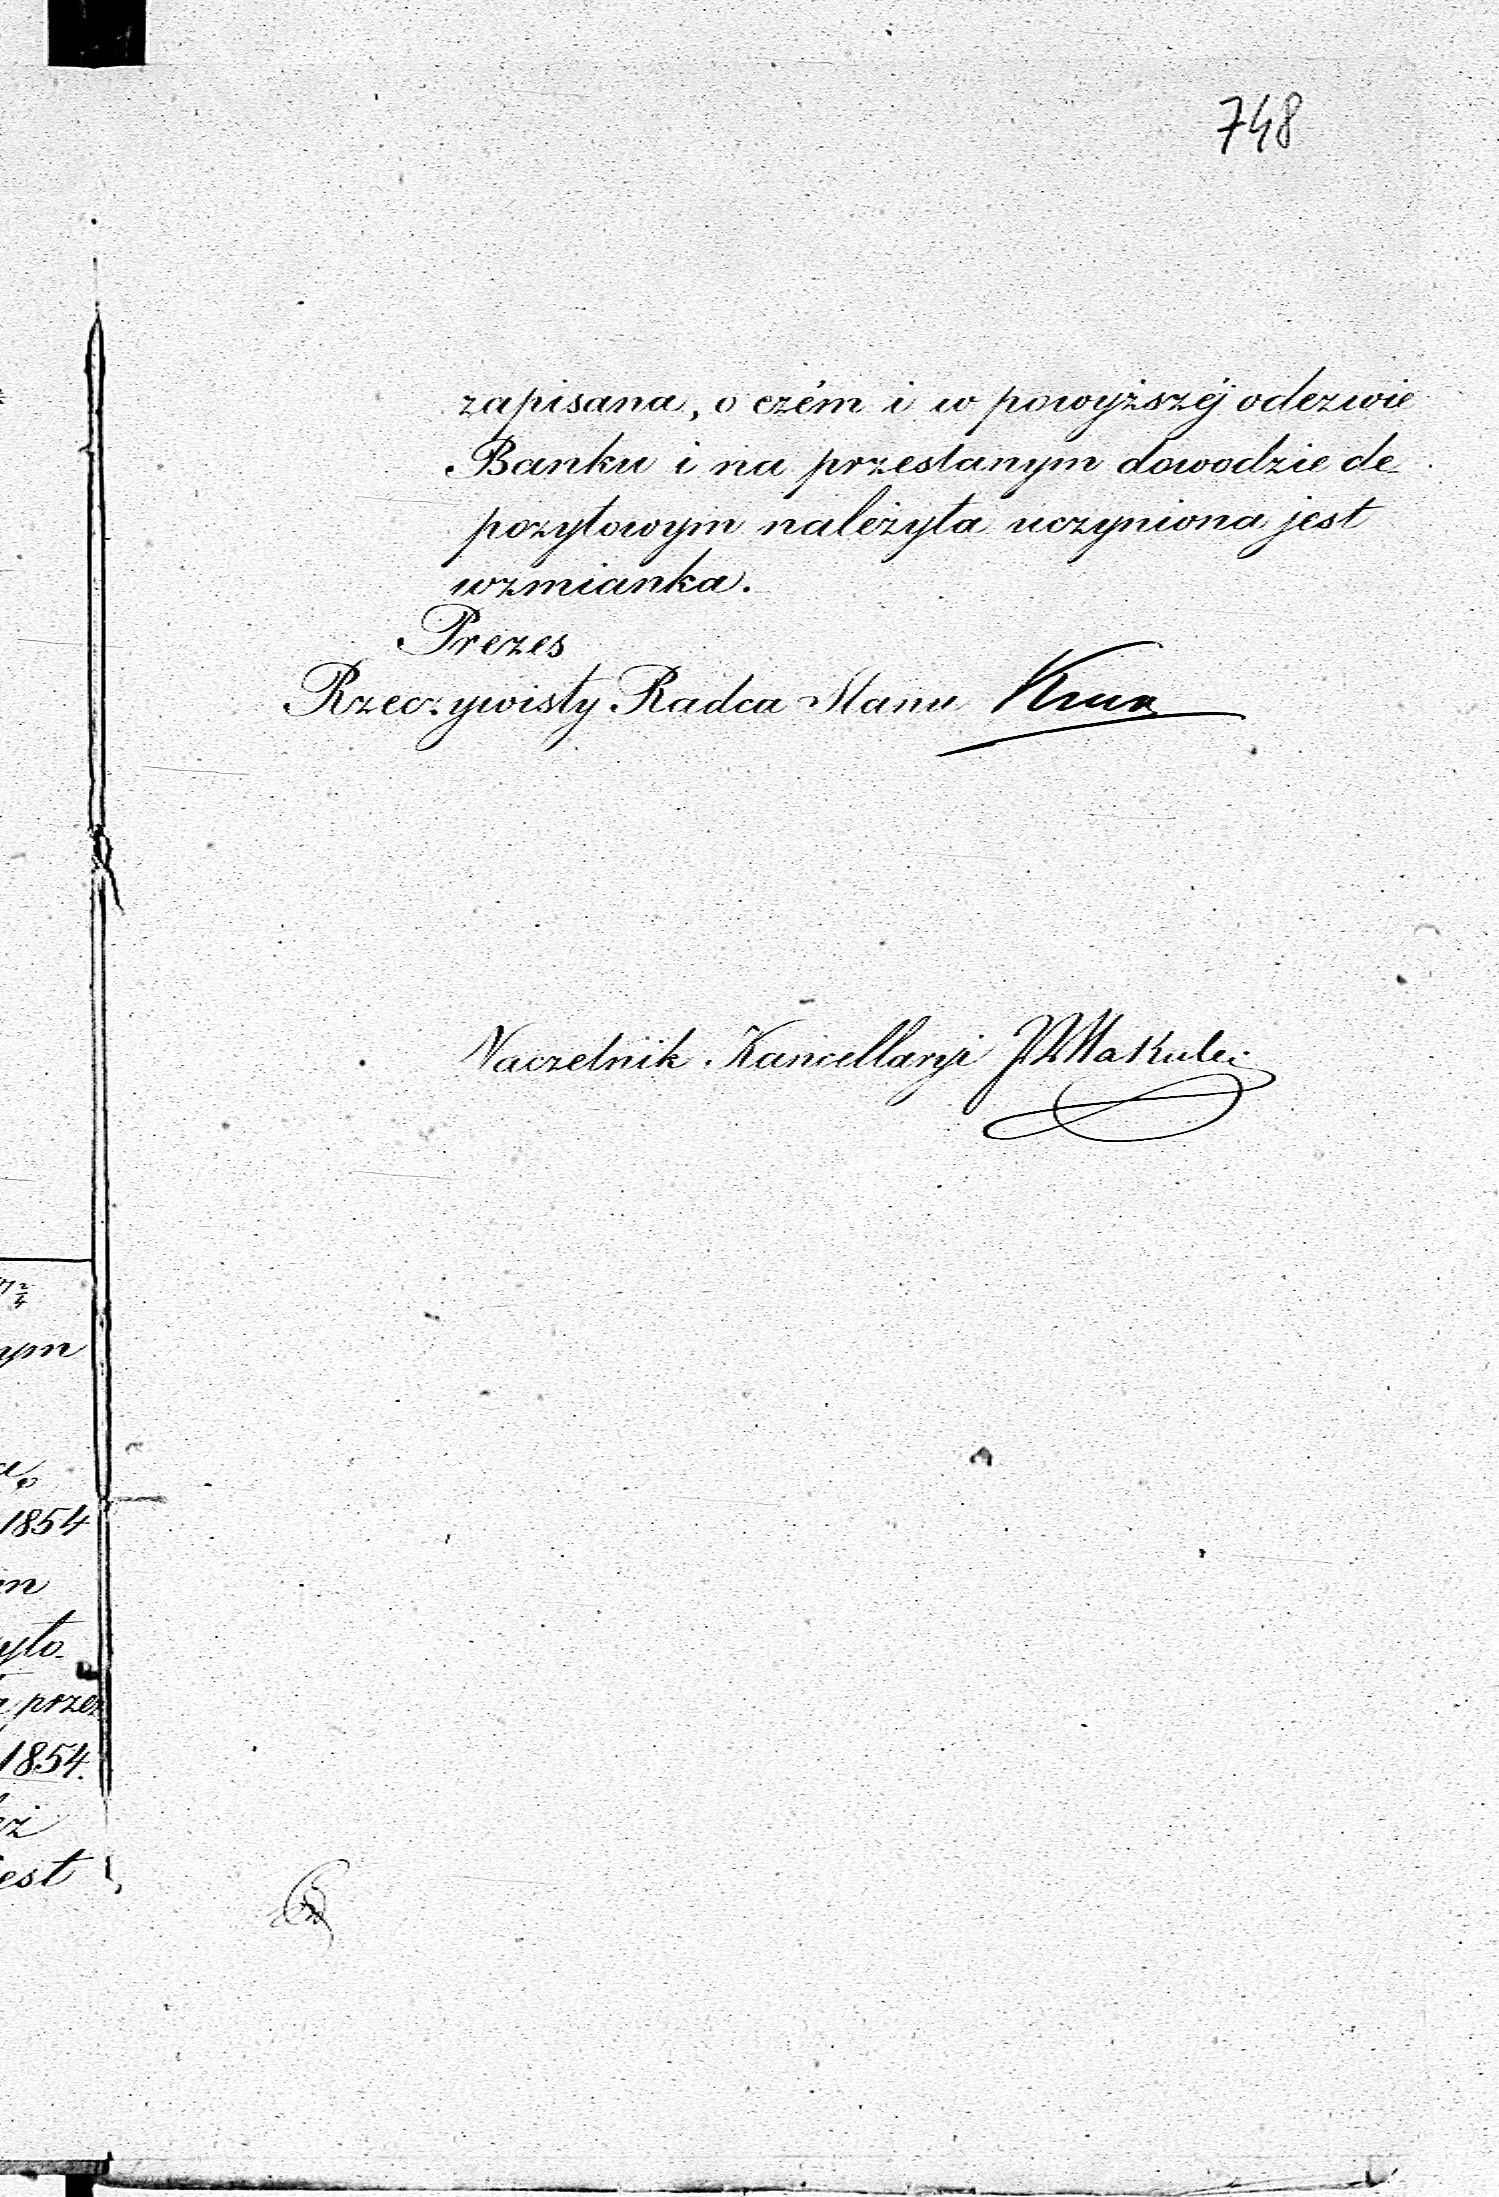 748
zapisana, o czém i w powyższéj odezwie
Banku i na przesłanym dowodzie de-
pozytowym należyta uczyniona jest
wzmianka.
Prezes
Rzeczywisty Radca Stanu
Naczelnik Kancellaryi
nym
1854
yto-
przez
1854.
jest